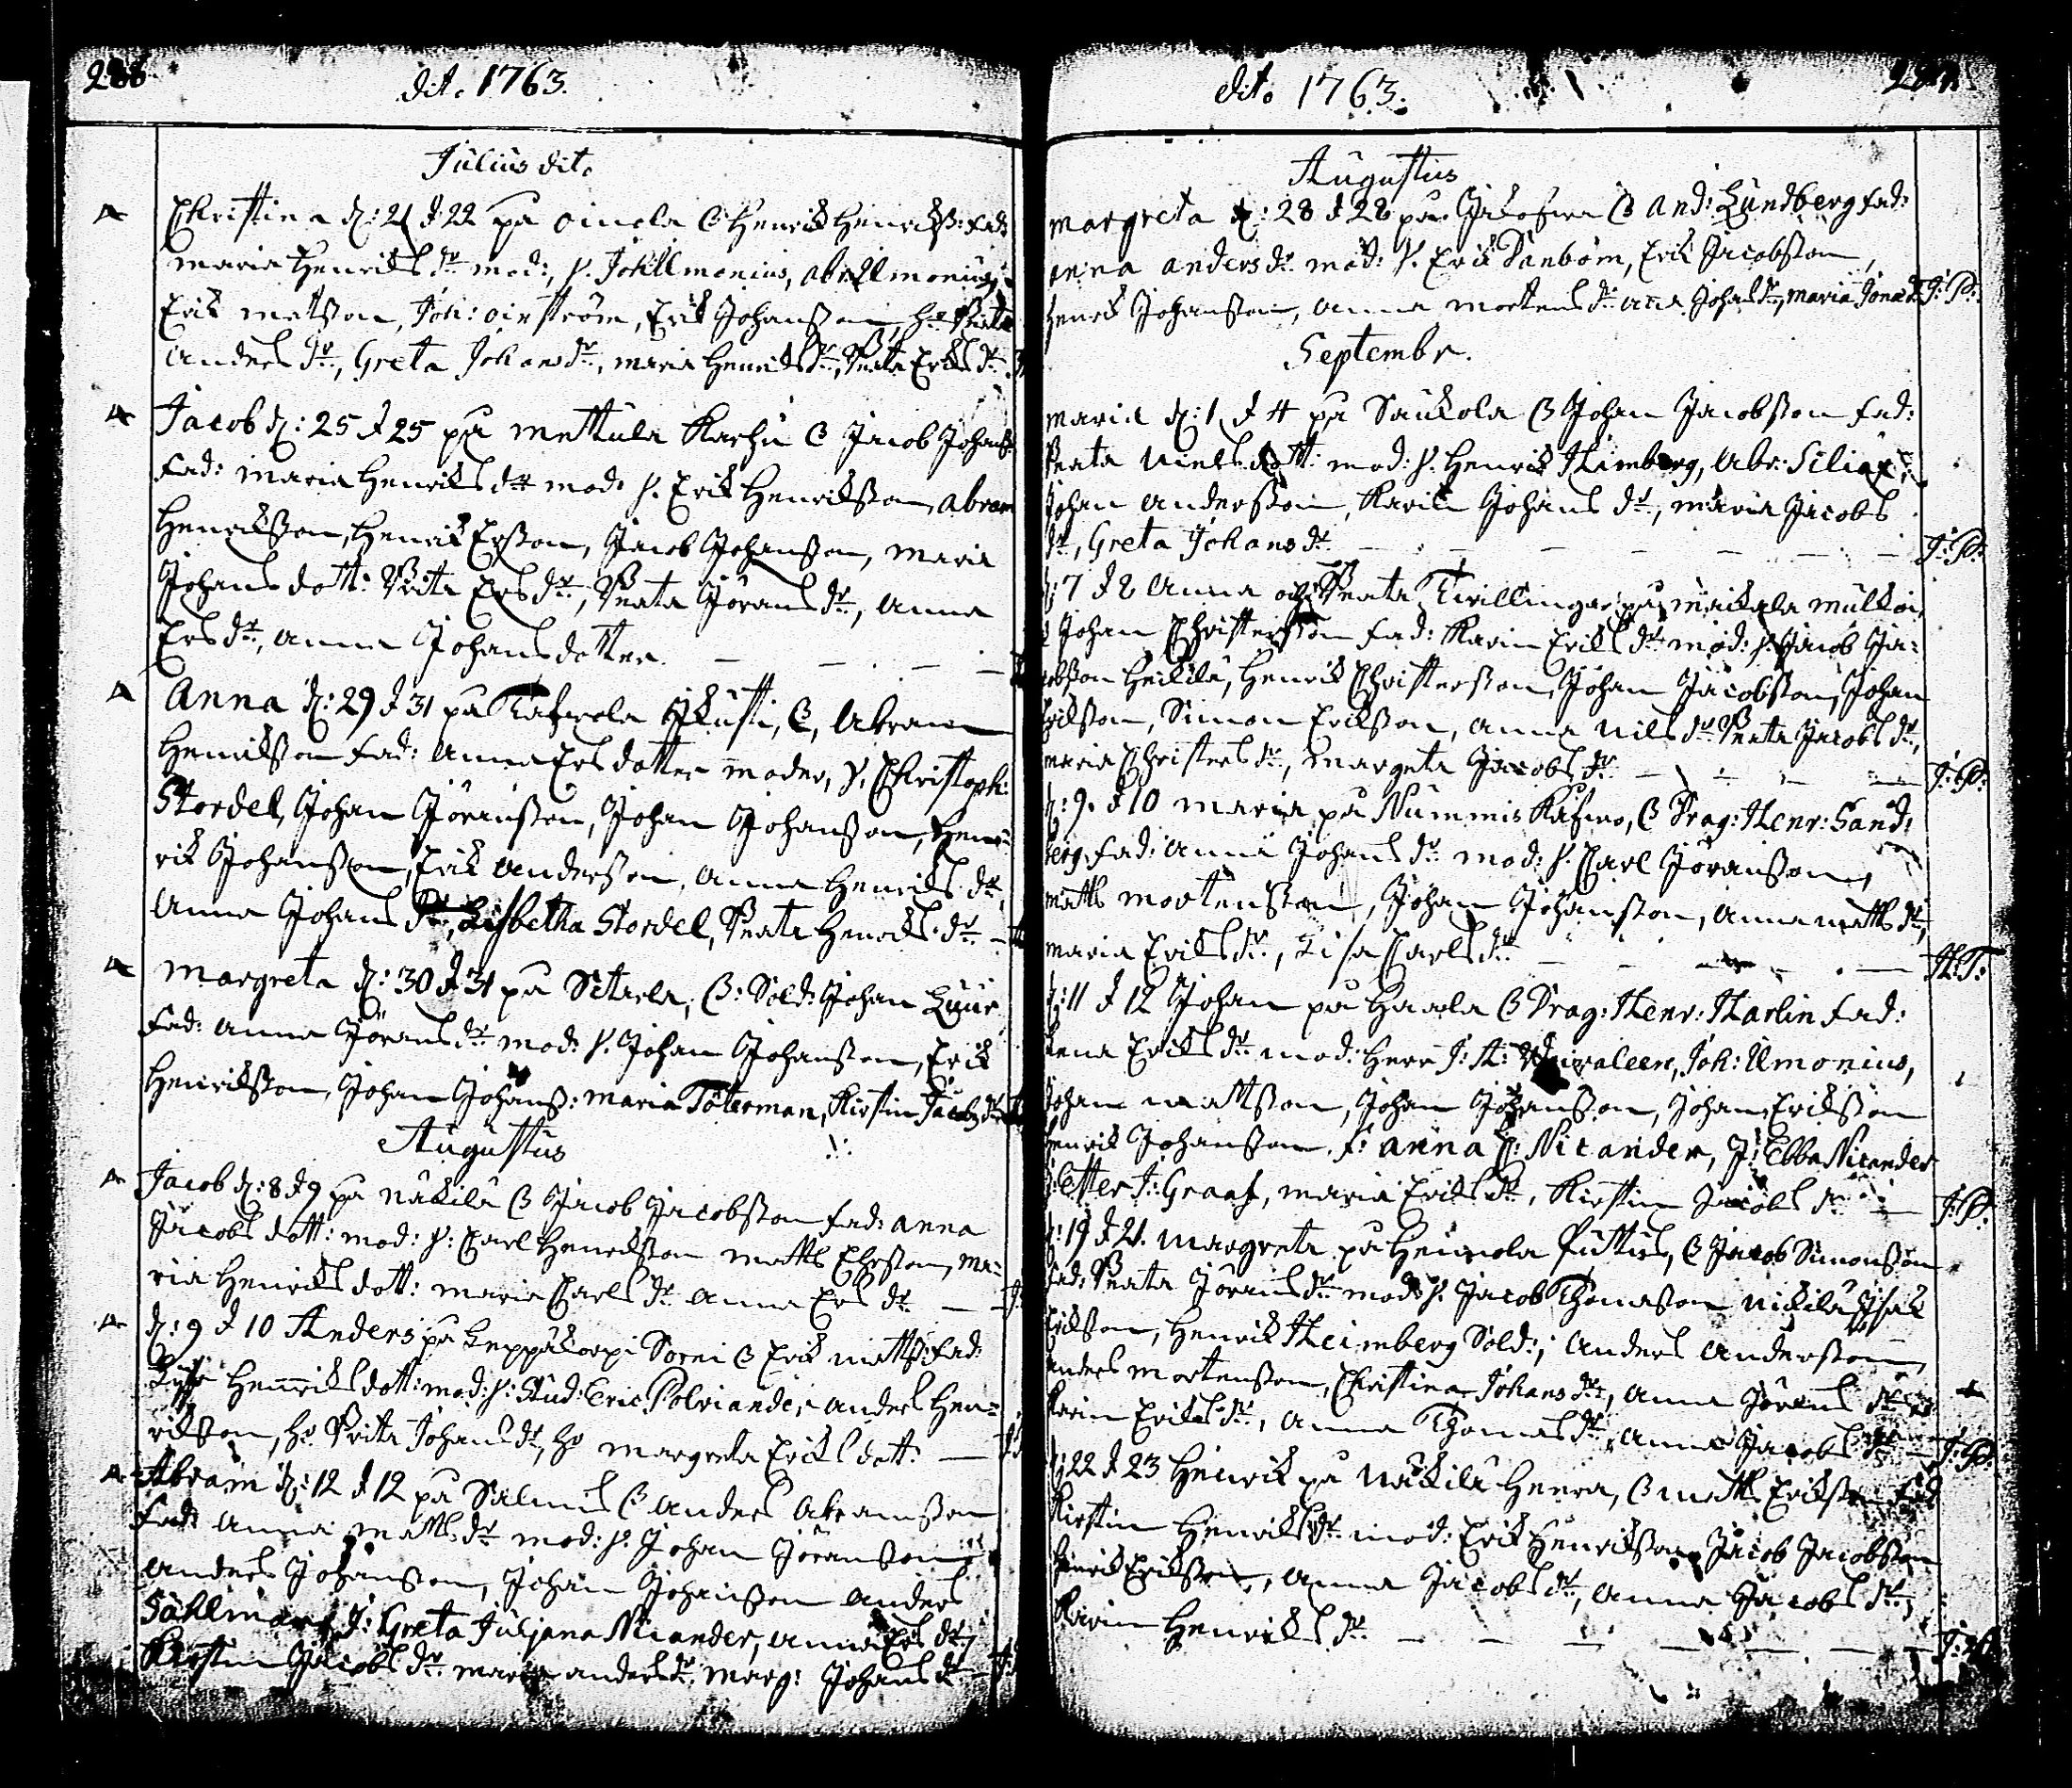 dit. 1763.
Julius dit.
Christina d: 21 d 22 på oinola B Henrik Henrikß: fad:
maria Henriks dr mod:, S. Joh Ilmonius, abr Ilmonius,
Erik matsson, Joh: oinström, Erik Johansson, Beata
anders dr, Greta Johans dr, maria Henriks dr, Beata Eriks dr
Jacob d: 25 d 25 på mettula Karhu B Jacob Johanß:
fad: maria Henriks dr mod: S. Erik Henriksson, abram
Henriksson, Henrik Ersson, Jacob Johansson, maria
Johans dott: Brita Ers dr, Beata Jörans dr, anna
Ers dr, anna Johans dotter.
Anna d: 29 d 31 på B, Abram
Henriksson fad: anna Ers dotter moder, S. Christoph:
Stordel, Johan Jöransson, Johan Johansson, Hen-
rik Johansson, Erik andersson, anna Henriks dr,
anna Johans dr, Lisbetha Stordel, Beata Henriks dr
margreta d: 30 d 31 på Sitarla, B: Sold: Johan Luur
fad: anna Jörans dr mod: S. Johan Johansson, Erik
Henriksson, Johan Johanß: maria Töterman, Kirstin Jacobs dr
Augustus
Jacob d: 8 d 9 på näkilä B Jacob Jacobsson fad: anna
Jacobs dott: mod: S: Carl Henriksson matts Ersson, ma=
ria Henriks dott: maria Carls dr anna Ers dr
d: 9 d 10 Anders på Leppäkorpi Sorri B Erik mattß: fad:
Henriks dott: mod: S: Stud: Eric Polviander anders Hen=
riksson, Brita Johans dr, margreta Eriks dott:
Abram d: 12 d 12 på Salmis B anders abramsson
fad: anna matts dr mod: S: Johan Jöransson
anders Johansson, Johan Johansson anders
Sahlmark, J: Greta Juljana Nicander, anna Ers dr,
Kirstin Jacobs dr maria anders dr, marg: Johans dr
dit. 1763.
Augustus
margreta d: 28 d 28 på B And: Lundberg fad:
anna anders dr mod: S. Erik Danbom, Erik Jacobsson,
Henrik Johansson, anna mortens dr anna Johans dr, maria Jonæ dr J: P:
Septembr.
maria d: 1 d 4 på Saukola B Johan Jacobsson fad:
Beata Niels dott: mod: S. Henrik Heimberg, Abr: Siliax,
Johan andersson, Karin Johans dr, maria Jacobs
dr, Greta Johans dr J: P:
d: 7 d 8 Anna och Beata Tvillingar på maikala mulkoi,
B Johan Christersson fad: Karin Eriks dr mod: S. Jacob Ja=
cobsson Heikilä, Henrik Christersson, Johan Jacobsson, Johan
Eriksson, Simon Eriksson, anna Nils dr Beata Jacobs dr,
maria Christers dr, margreta Jacobs dr J: P:
d: 9. d 10 maria på Nummis B Drag: Henr: Sand:
berg fad: anna Johans dr mod: S. Carl Jöransson,
matts mortensson, Johan Johansson, anna matts dr,
maria Eriks dr, Lisa Carls dr H: T:
d: 11 d 12 Johan på Haarla B Drag: Henr: Harlin fad:
Lena Eriks dr mod: Herr J: H: Joh: Ilmonius,
Johan mattsson, Johan Johansson, Johan Eriksson
Henrik Johansson, f: anna C: Nicander, J: Ebba Nicander
J: Graaf, maria Eriks dr, Kirstin Jacobs dr J: P:
d: 19 d 21. margreta på Heinola Puttis, B Jacob Simonsson
fad: Beata Jörans dr mod: S. Jacob Thomasson Nikilä, Isak
Eriksson, Henrik Heimberg Sold:, anders andersson,
anders mortensson, Christina Johans dr, anna Jörans dr
Karin Eriks dr, anna Thomas dr, anna Jacobs dr J: P:
d: 22 d 23 Henrik på Näkilä Herra, B matts Eriksson fad
Kirstin Henriks dr mod: Erik Henriksson, Jacob Jacobsson
Henrik Eriksson, anna Jacobs dr, anna Jacobs dr,
Karin Henriks dr